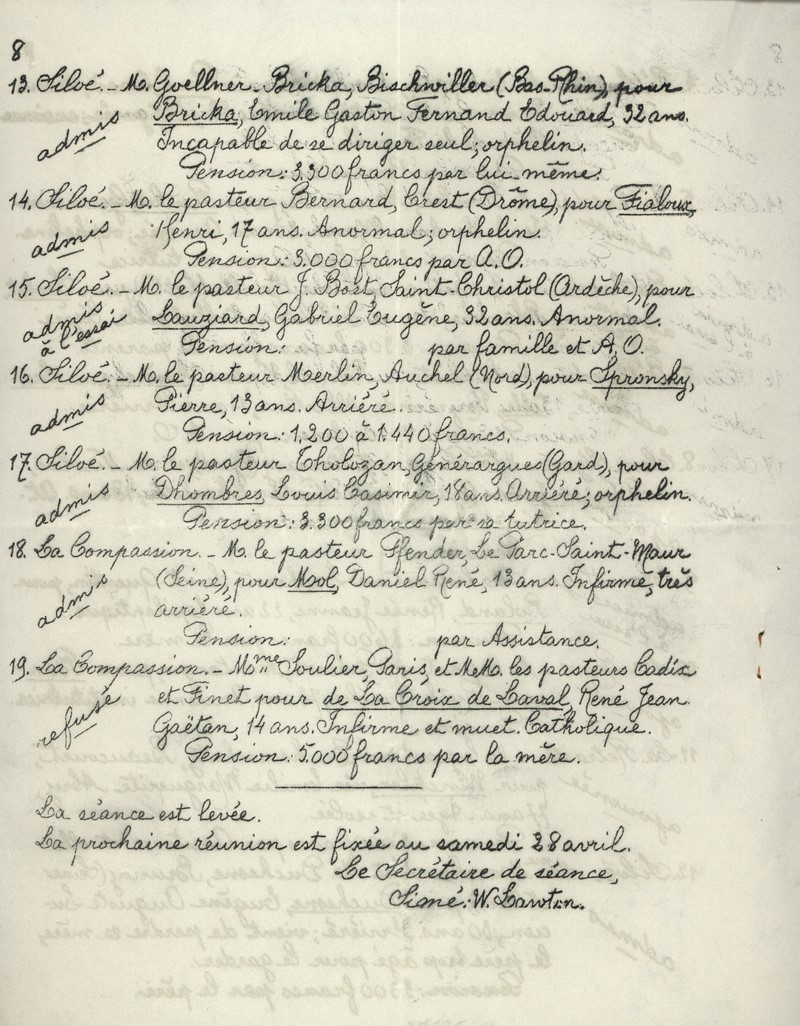 8
13. Siloé. - M. Goellner-Bricka, Bischwiller (Bas-Rhin), pour
admis
Bricka, Emile Gaston Fernand Edouard, 32 ans.
Incapable de se diriger seul; orphelin.
Pension: 3.300 francs par lui-même.
14. Siloé. - M. le pasteur Bernard, Crest (Drôme), pour Fialoux,
admis
Henri, 17 ans. Anormal; orphelin.
Pension: 3.000 francs par A.O.
15. Siloé. - M. le pasteur J. Bost, Saint-Christol (Ardèche), pour
admis
à l'essai
Lauziard, Gabriel Eugène, 32 ans. Anormal.
Pension: par famille et A.O.
16. Siloé. - M. le pasteur Merlin, Auchel (Nord), pour Spronsky,
admis
Pierre, 13 ans. Arriéré.
Pension: 1.200 à 1.440 francs.
17. Siloé. - M. le pasteur Tholozan, Générargues (Gard), pour
admis
Dhombres, Louis Casimir, 18 ans. Arriéré; orphelin.
Pension: 3.300 francs par sa tutrice.
18. La Compassion. - M. le pasteur Pfender, Le Parc-Saint-Maur
admis
(Seine), pour Mol, Daniel René, 13 ans. Infirme, très
arriéré.
Pension: par Assistance.
19. La Compassion. - Mme Soulier, Paris, et M.M. les pasteurs Cadix
refusé
et Finet pour de La Croix de Laval, René Jean
Gaëtan, 14 ans. Infirme et muet. Catholique.
Pension: 5.000 francs par la mère.
La séance est levée.
La prochaine réunion est fixée au samedi 28 avril.
Le Secrétaire de séance,
Simé: W. Lawton.